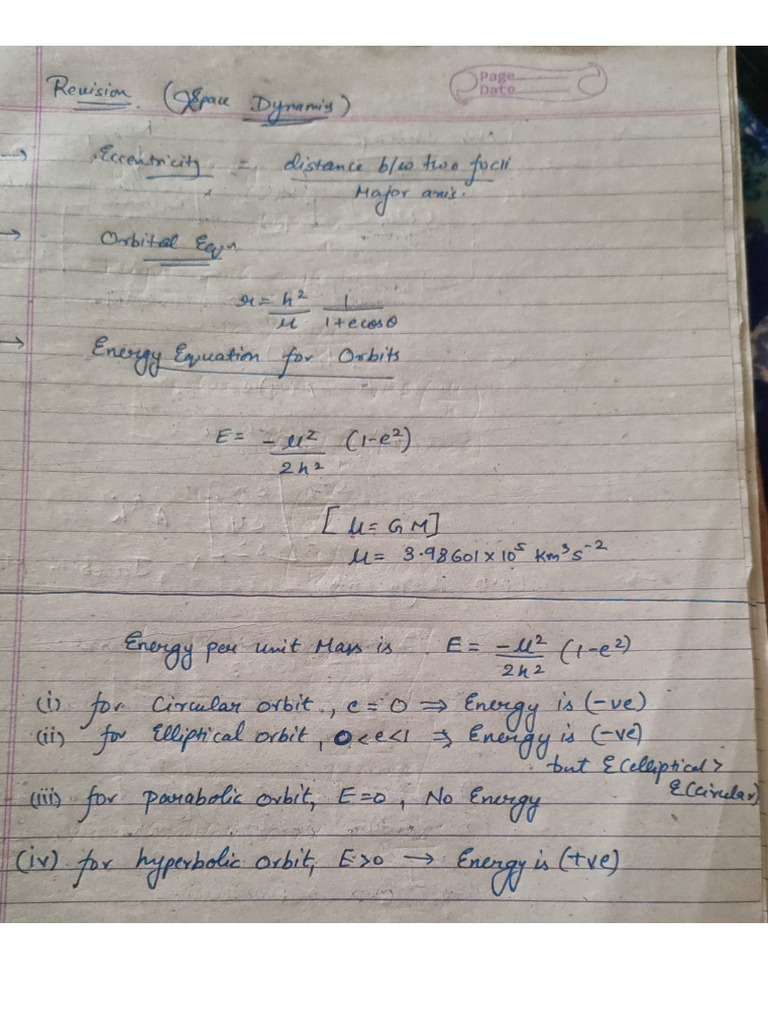 Page
Date
Revision (Space Dynamics)
→ Eccentricity = distance b/w two focii / Major axis.
→ Orbital Eqn
r = h² / μ 1 / 1+ecosθ
→ Energy Equation for Orbits
E = -μ² / 2h² (1-e²)
[μ = GM]
μ = 3.98601 × 10⁵ Km³s⁻²
Energy per unit Mass is E = -μ² / 2h² (1-e²)
(i) for Circular orbit., e = 0 ⇒ Energy is (-ve)
(ii) for Elliptical orbit, 0<e<1 ⇒ Energy is (-ve)
but E(elliptical) >
E(circular)
(iii) for parabolic orbit, E=0, No Energy
(iv) for hyperbolic orbit, E>0 → Energy is (+ve)